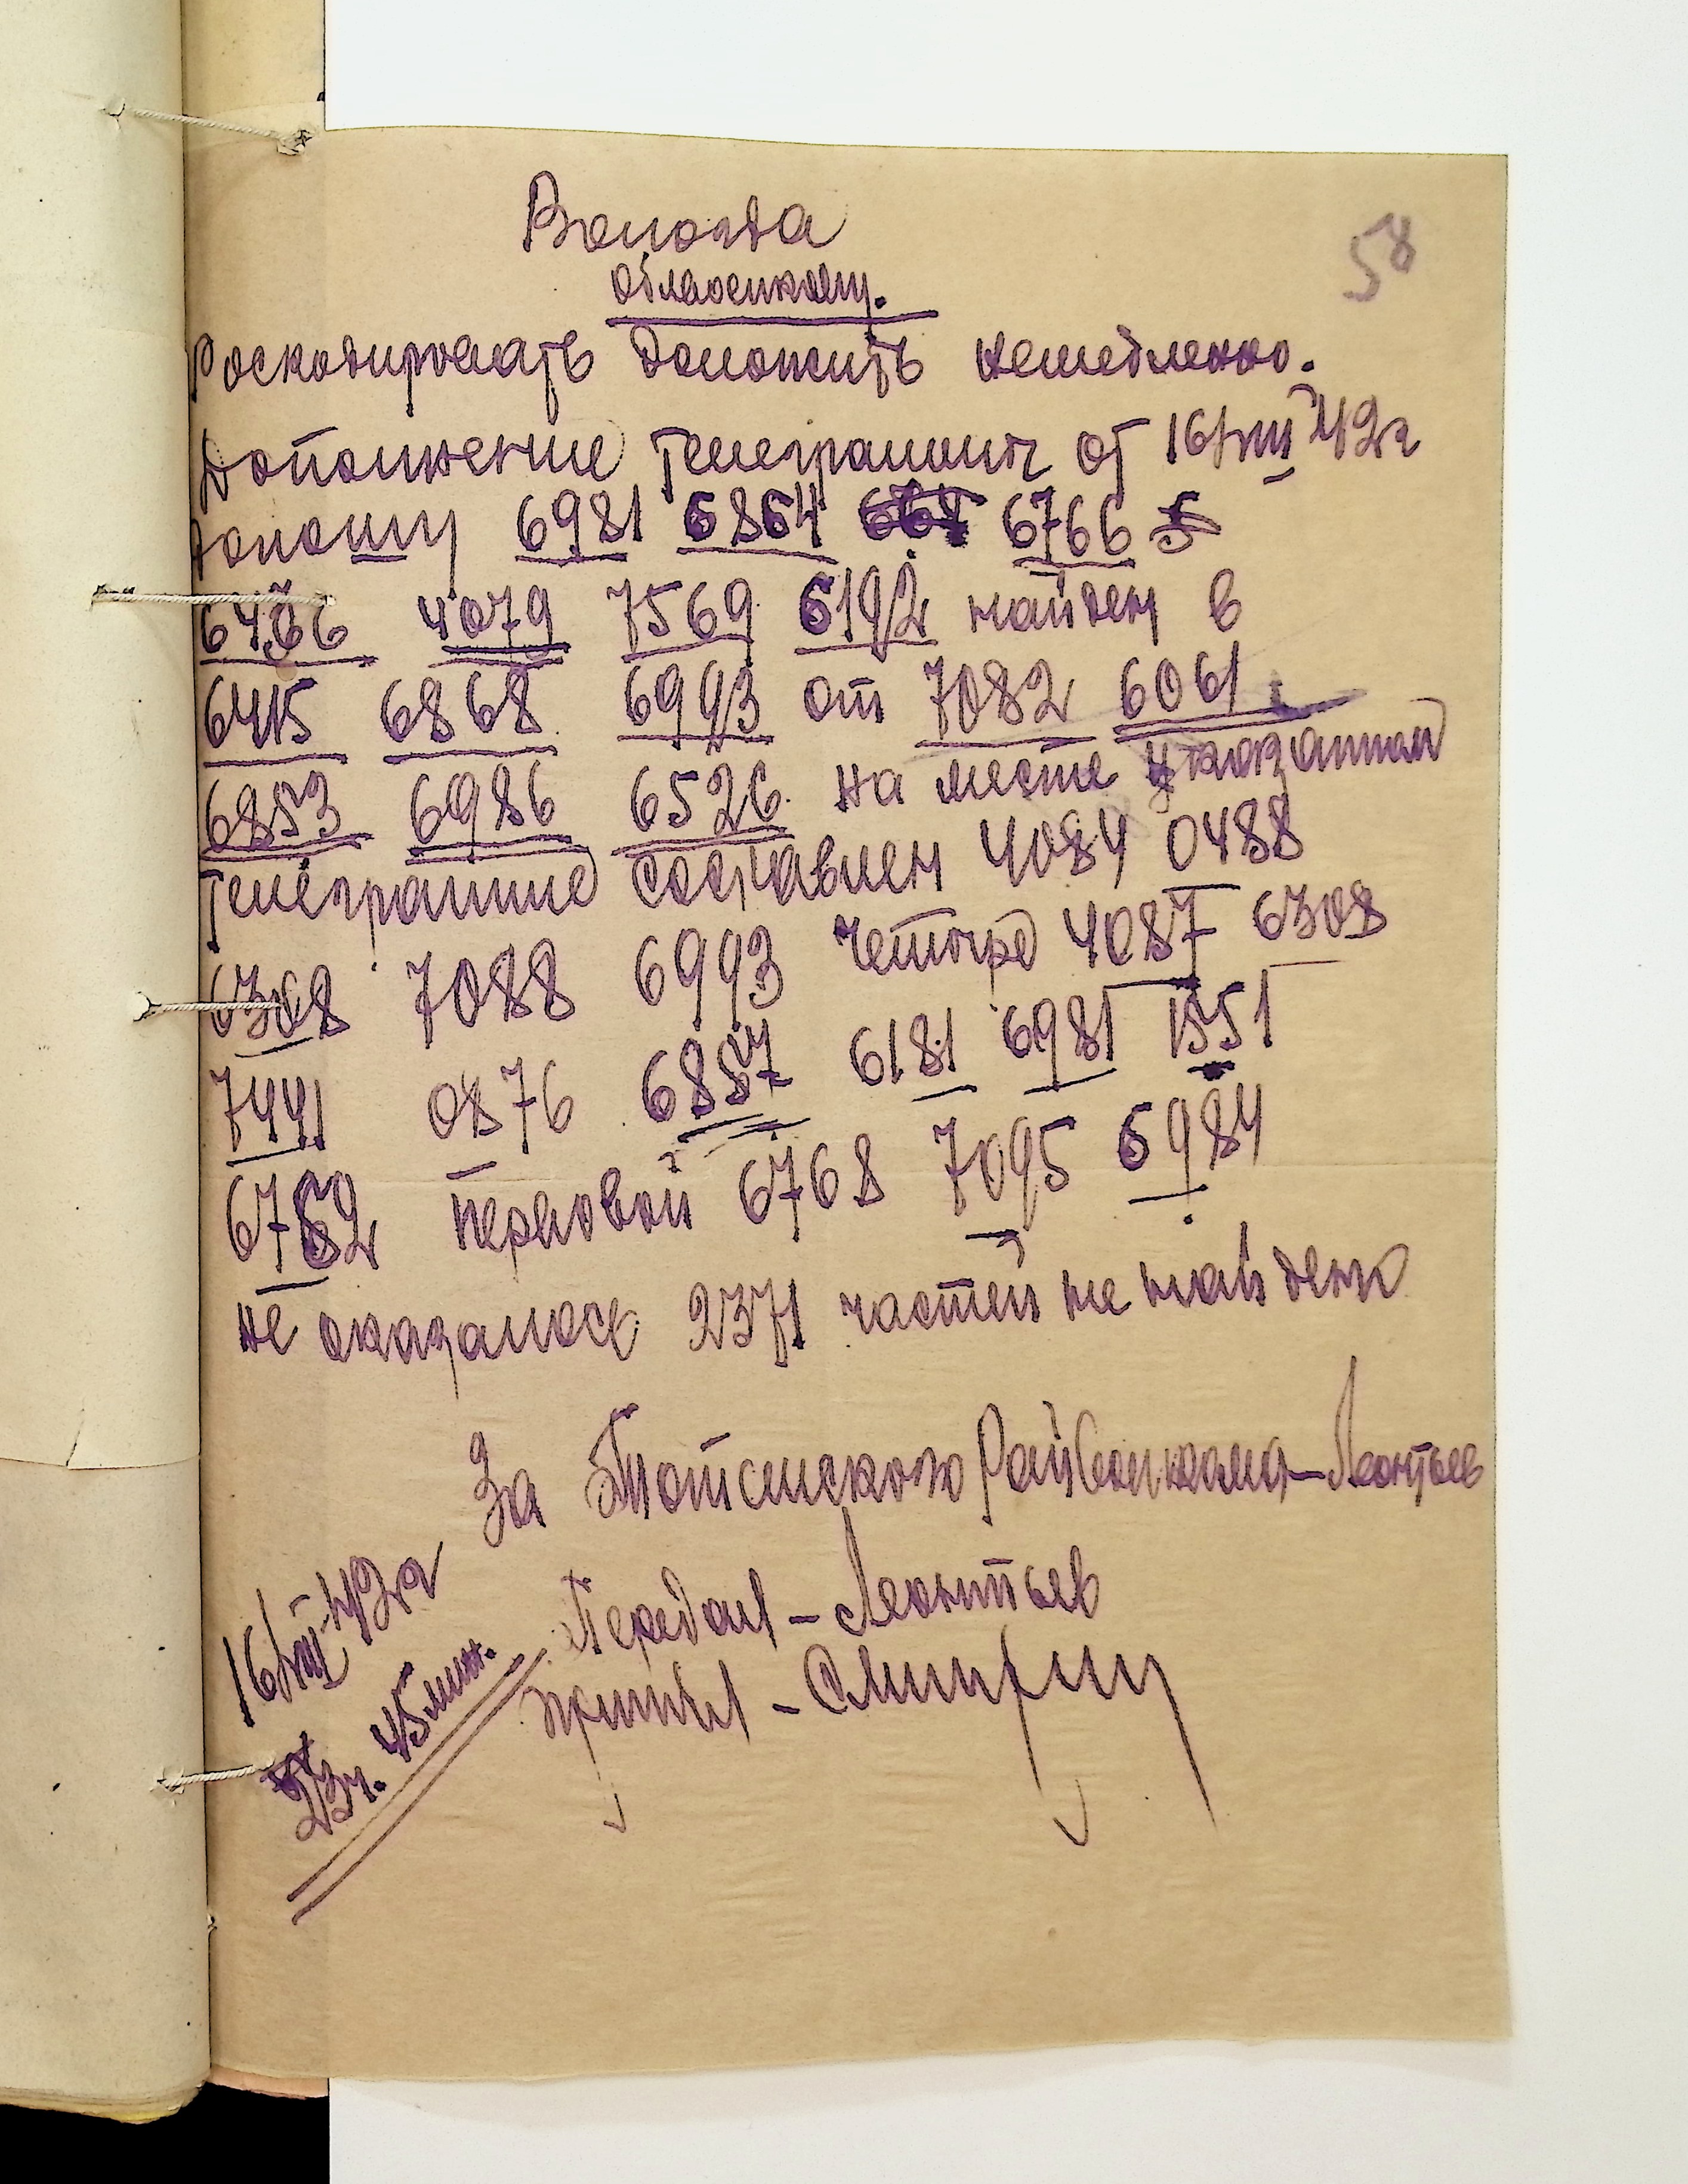 Вологда
Облвоенкому.
58
Роскодировать доложить немедленно.
Дополнение телеграммы от 16/VIII 42г
доношу 6981 6864 6766
6466 4079 7569 6192 найден в
6415 6868 6993 от 7082 6061
6853 6986 6526 на месте указанном
телеграмме составлен 4084 0488
6308 7088 6993 четыре 4087 6308
7441 0876 6887 6181 6981 1551
6782 первой 6768 7095 6984
не оказалось 2371 частей не найдено
За Тотемского Райвоенкома – Леонтьев
16/VIII 42г
23ч. 45мин.
Передал – Леонтьев
принял –